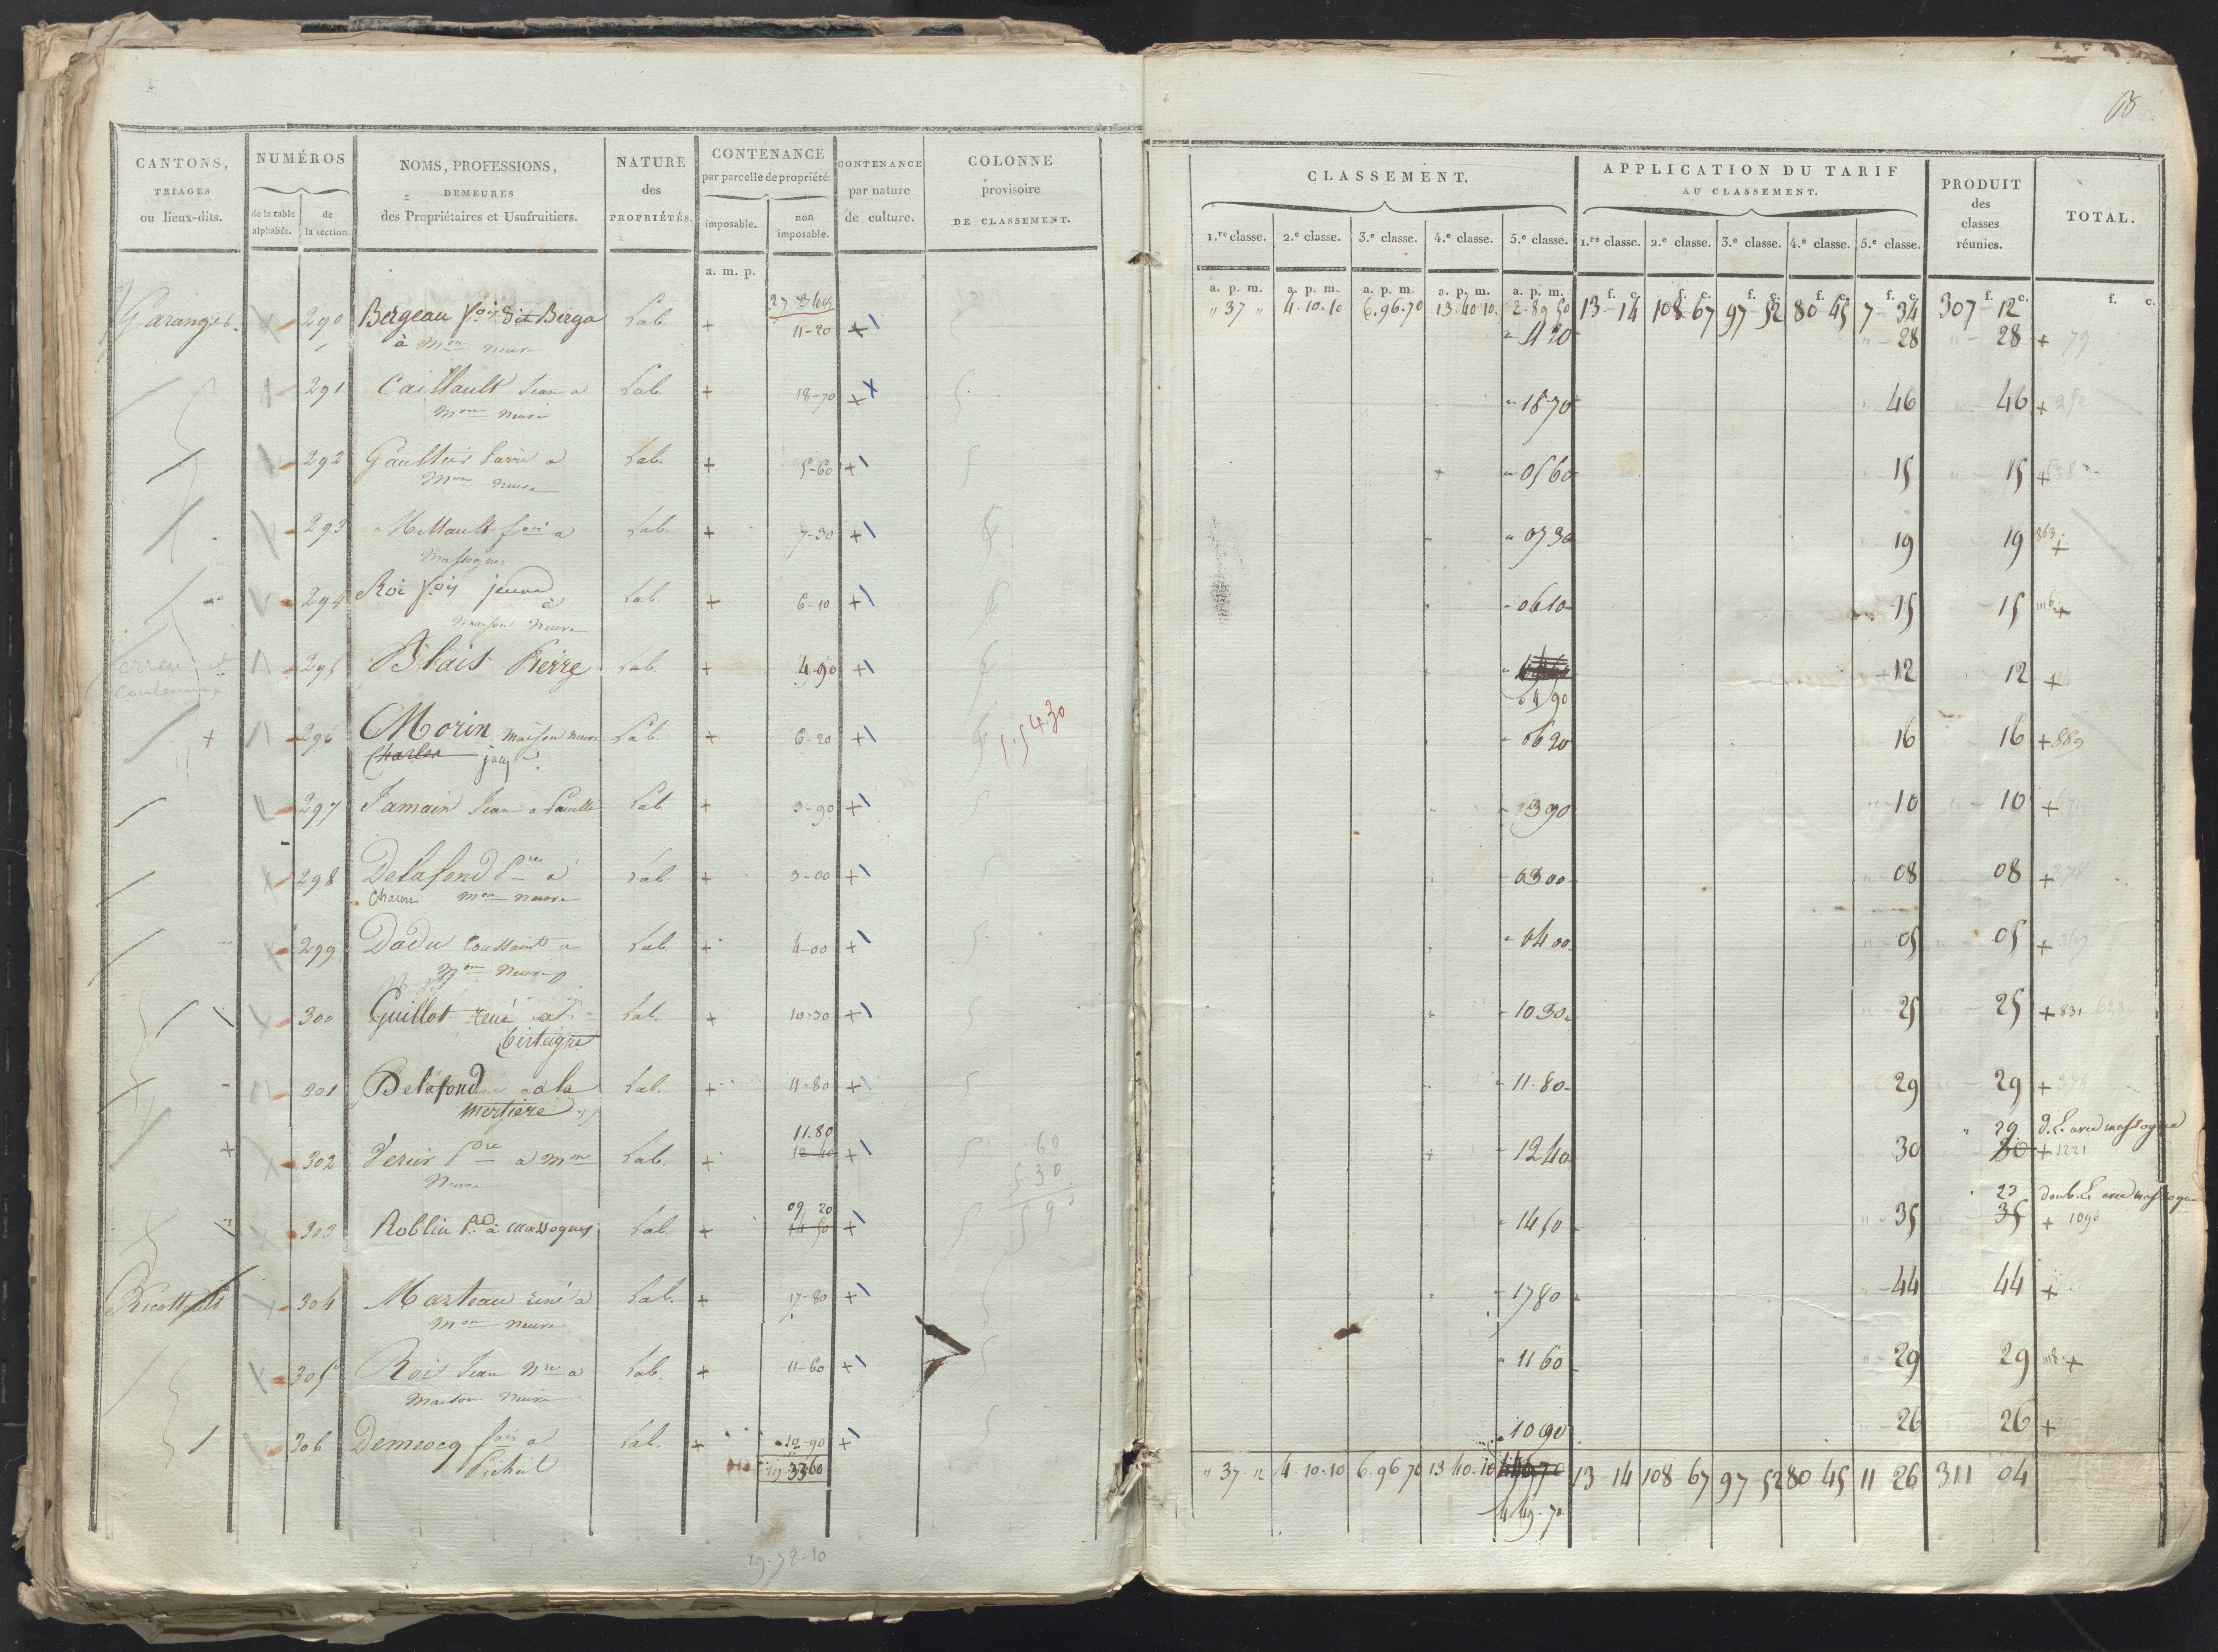 68
CANTONS,
TRIAGES
ou lieux-dits.
NUMÉROS
de la table alphabét.
de la section.
NOMS, PROFESSIONS,
DEMEURES
des Propriétaires et Usufruitiers.
NATURE
des
PROPRIÉTÉS.
CONTENANCE
par parcelle de propriété
imposable.
non imposable.
CONTENANCE
par nature
de culture.
COLONNE
provisoire
DE CLASSEMENT.
a. m. p.
Garanges. 290 Bergeau fois dit Berga Lab. + 11-20 +
à Mon neuve
291 Caillault Jean a Lab. + 18-70 +
Mon Neuve
292 Gaultier Pierre a Lab. + 5-60 +
Mon Neuve
293 Millault fois a Lab. + 7-30 +
Massognes
294 Roi fois jeune à Lab. + 6-10 +
Maison Neuve
295 Blais Pierre Lab. + 4-90 +
296 Morin maison neuve Lab. + 6-20 +
Charles jacq
1.5430
297 Jamain Jean a Lab. + 3-90 +
298 Delafond Pre a Lab + 3-00 +
Charon Mon neuve
299 Dadu toussaint a Lab + 4-00 +
Mon Neuve
300 Guillot rené a Lab. + 10-30 +
301 Delafond a la Lab. + 11-80 +
11.80
302 Verier Pre a Mon Lab. + 12 40 +
Neuve
60
5-30
09 20
303 Roblin à Massognes Lab. + 14 50 +
304 Marteau rené a Lab. + 17-80 +
Mon neuve
305 Roi Jean a Lab. + 11-60 +
Maison Neuve
306 Demeocq fois a Lab. + 10-90 +
29 33 60
29-72-10
CLASSEMENT.
1.re classe. 2.e classe. 3.e classe. 4.e classe. 5.e classe.
APPLICATION DU TARIF
AU CLASSEMENT.
1.re classe. 2.e classe. 3.e classe. 4.e classe. 5.e classe.
PRODUIT
des
classes
réunies.
TOTAL.
a. p. m. a. p. m. a. p. m. a. p. m. a. p. m. f. c. f. c. f. c. f. c. f. c. f. c. f. c.
" 37 " 4.10.10 6.96.70 13.40 10 2.89 50 13-14 108-67 97-52 80 45 7-34 307-12
11 20 28 28 + 79
18 70 46 46 +
05 60 15 15 +
07 30 19 19 863 +
06 10 15 15 1116 +
12 12 +
04 90
06 20 16 16 +889
3 90 10 10 +
03 00 08 08 +
04 00 05 05 +
10 30 25 25 +831
11-80 29 29 +
29 d. E. avec massognes
12 40 30 30 +1221
23 doub. E avec massognes
14 50 35 35 + 1096
17 80 44 44 +
11 60 29 29 1118 +
10 90 26 26 +
" 37 " 4 10.10 6.96 70 13 40.10 13-14 108 67 97 52 80 45 11 26 311 04
4 49.70